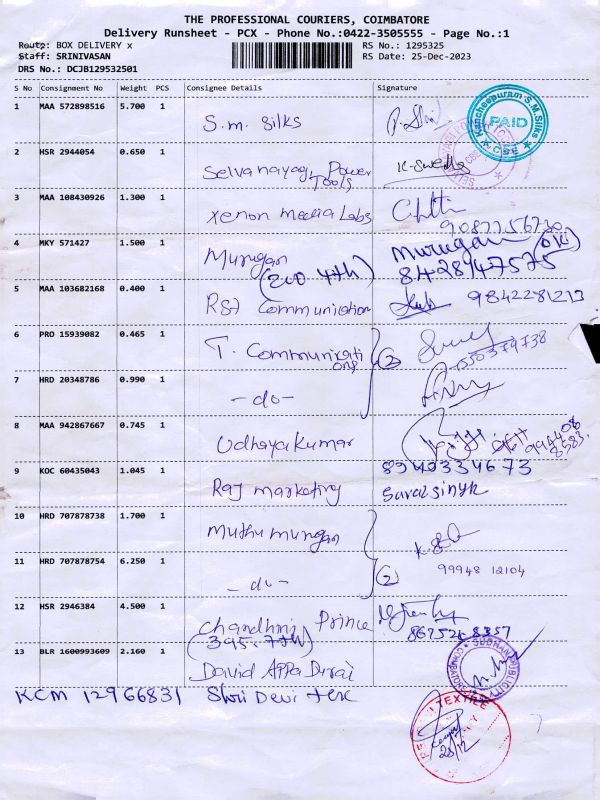 THE PROFESSIONAL COURIERS, COIMBATORE
Delivery Runsheet - PCX - Phone No.:0422-3505555 - Page No.:1
Route: BOX DELIVERY x
Staff: SRINIVASAN
DRS No.: DCJB129532501
RS No.: 1295325
RS Date: 25-Dec-2023
S No Consignment No Weight PCS Consignee Details Signature
1 MAA 572898516 5.700 1 S.m. Silks
Kancheepuram S.M.Silks PAID CBE
2 HSR 2944054 0.650 1 Selvanayagi Power Tools
3 MAA 108430926 1.300 1 Xenon Media Labs
9087756730
4 MKY 571427 1.500 1 Murugan Murugan (OK)
(200 4th) 8428947575
5 MAA 103682168 0.400 1 RSJ Communication 9842281213
6 PRO 15939082 0.465 1 T. Communications (2)
7 HRD 20348786 0.990 1 -do-
8 MAA 942867667 0.745 1 Udhayakumar 994408 8583
9 KOC 60435043 1.045 1 Raj marketing
Savalsingh
10 HRD 707878738 1.700 1 muthu murugan
11 HRD 707878754 6.250 1 -do- (2) 99948 12104
12 HSR 2946384 4.500 1 Chandhni Prince
(395.7th)
13 BLR 1600993609 2.160 1 David Appa Durai
KCM 12966831 Shri Devi tex
TEXTILE
25/12